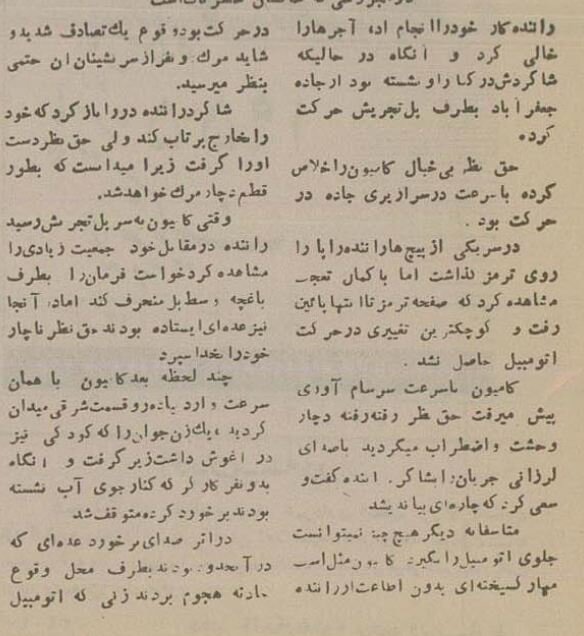 راننده کار خودرا انجام داد، آجرهارا
خالی کرد و آنگاه در حالیکه
شاگردش در کنار او نشسته بود از جاده
جعفر آباد بطرف پل تجریش حرکت
کرد.
حق نظر بی خیال کامیون را خلاص
کرده با سرعت در سرازیری جاده در
حرکت بود .
در سر یکی از پیچ ها راننده پا را
روی ترمز گذاشت اما با کمال تعجب
مشاهده کرد که صفحه ترمز تا انتها پائین
رفت و کوچکترین تغییری در حرکت
اتومبیل حاصل نشد .
کامیون با سرعت سرسام آوری
پیش میرفت حق نظر رفته رفته دچار
وحشت و اضطراب میگردید با صدای
لرزانی جریان را بشاگرد راننده گفت و
سعی کرد که چاره ای بیاندیشد
متاسفانه دیگر هیچ چیز نمیتوانست
جلوی اتومبیل را بگیرد کامیون مثل اسب
مهار گسیخته ای بدون اطاعت از راننده
در حرکت بود و وقوع یک تصادف شدید و
شاید مرگ و نفر از سرنشینان آن حتمی
بنظر میرسید.
شاگرد راننده در را باز کرد که خود
را بخارج پرتاب کند ولی حق نظر دست
اورا گرفت زیرا میدانست که بطور
قطع دچار مرگ خواهد شد.
وقتی کامیون به سر پل تجریش رسید
راننده در مقابل خود جمعیت زیادی را
مشاهده کرد خواست فرمان را بطرف
باغچه وسط پل منحرف کند اما در آنجا
نیز عده ای ایستاده بودند حق نظر ناچار
خود را بخدا سپرد
چند لحظه بعد کامیون با همان
سرعت وارد پیاده رو قسمت شرقی میدان
گردید ، یک زن جوان را که کودکی نیز
در آغوش داشت زیر گرفت و آنگاه
بدو نفر کارگر که کنار جوی آب نشسته
بودند برخورد کرده متوقف شد
در اثر صدای برخورد عده ای که
در آن حدود بودند بطرف محل وقوع
حادثه هجوم بردند زنی که اتومبیل